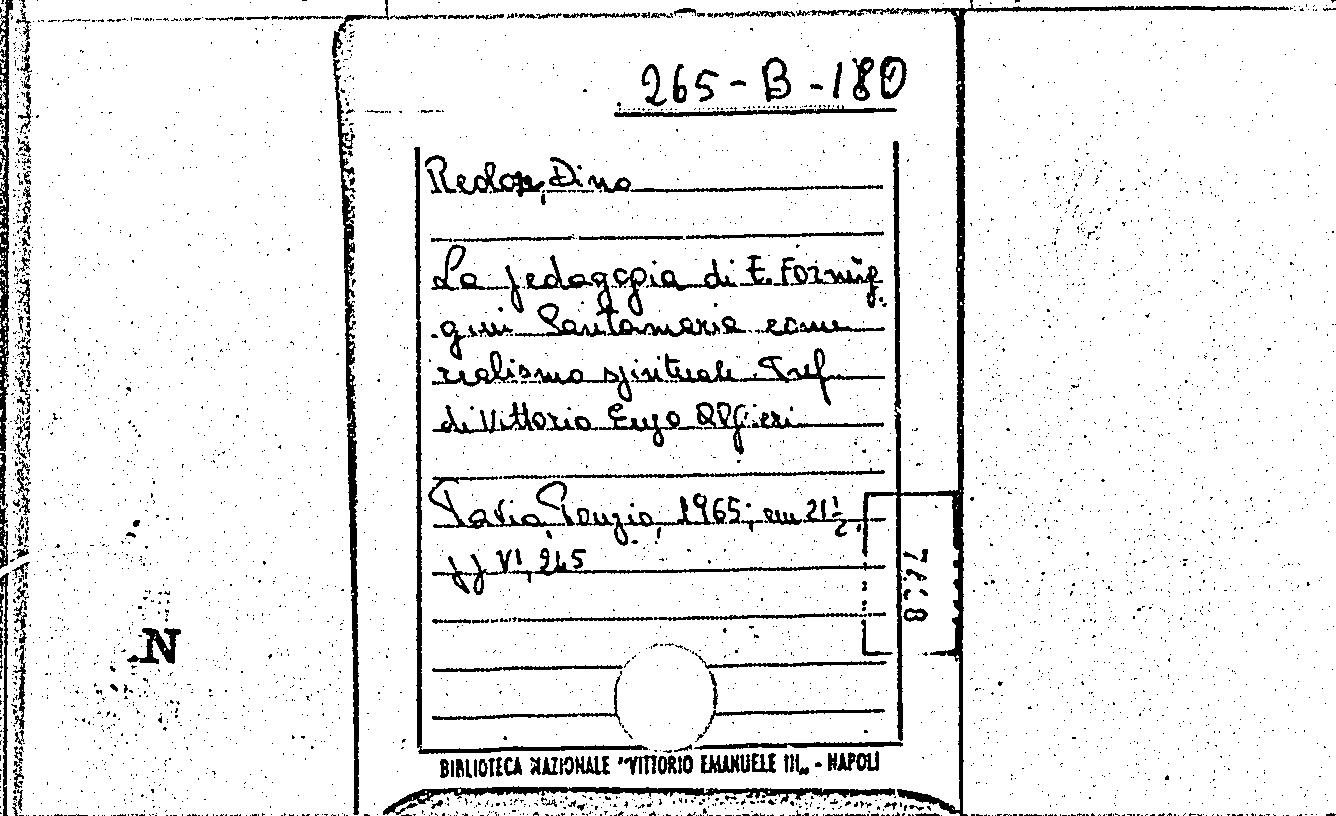 265-B-180
Redoz, Dino
La pedagogia di E. Formig
gini Santamaria come
realismo spirituale. Pref.
di Vittorio Enzo Alfieri
Pavia, Ponzio, 1965; cm 21½.
pp VI, 265
N
BIBLIOTECA NAZIONALE "VITTORIO EMANUELE III„ - NAPOLI